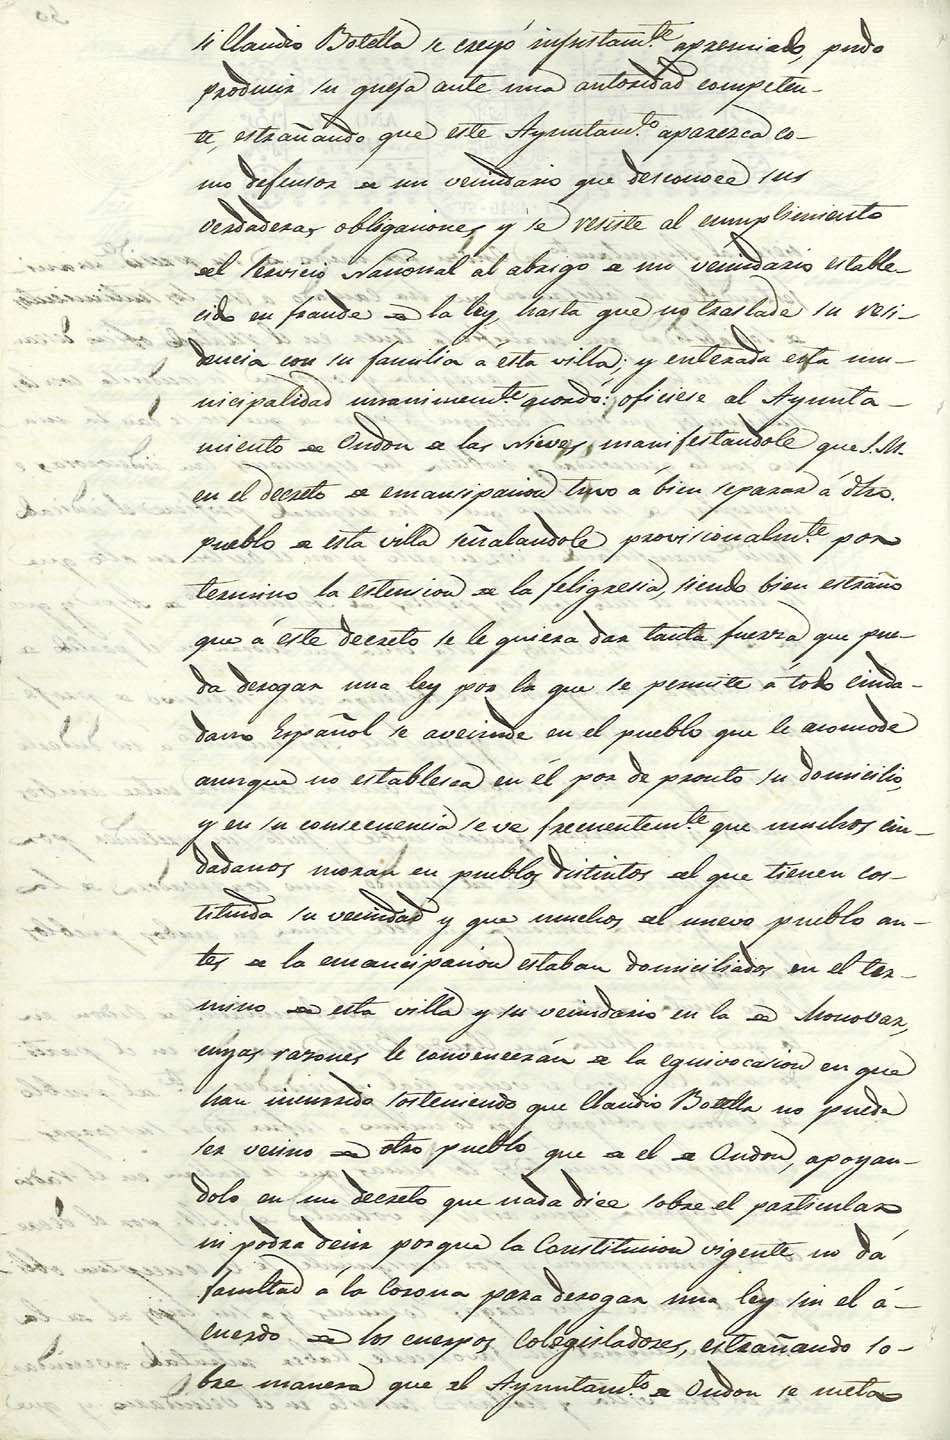 si Claudio Botella se creyó injustam.te apremiado, pudo
producir su queja ante una autoridad competen-
te, estrañando que este Ayuntam.to aparezca co-
mo defensor de un vecindario que desconoce sus
verdaderas obligaciones y se resiste al cumplimiento
del servicio Nacional al abrigo de un vecindario estable-
cido en fraude de la ley, hasta que no traslade su resi-
dencia con su familia á esta villa; y enterada esta mu-
nicipalidad unanimem.te acordó: oficiese al Ayunta-
miento de Ondon de las Nieves, manifestandole que S.M.
en el decreto de emancipacion tuvo á bien separar á dho.
pueblo de esta villa señalandole provisionalm.te por
termino la estension de la feligresia, siendo bien estraño
que á este decreto se le quiera dar tanta fuerza que pue-
da derogar una ley por la que se permite á todo ciuda-
dano Español se avecinde en el pueblo que le acomode
aunque no establesca en él por de pronto su domicilio,
y en su consecuencia se ve frecuentem.te que muchos ciu-
dadanos moran en pueblos distintos del que tienen cos-
tituida su vecindad y que muchos del nuevo pueblo an-
tes de la emancipacion estaban domiciliados en el ter-
mino de esta villa y su vecindario en la de Monovar,
cuyas razones le convencerán de la equivocasion en que
han incurrido sosteniendo que Claudio Botella no pueda
ser vecino de otro pueblo que de el de Ondon, apoyan-
dolo en un decreto que nada dice sobre el particular
ni podra decir porque la Constitucion vigente no dá
facultad á la Corona para derogar una ley sin el á-
cuerdo de los cuerpos Colegisladores, estrañando so-
bre manera que el Ayuntam.to de Ondon se meta